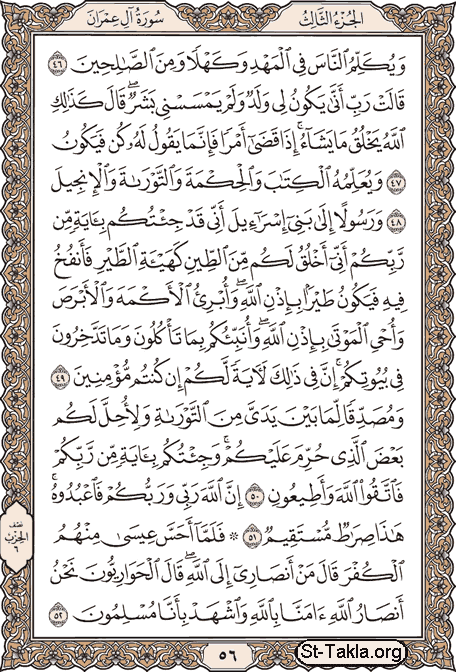 سُورَةُ آلِ عِمْرَانَ
الجُزْءُ الثَّالِثُ
وَيُكَلِّمُ ٱلنَّاسَ فِي ٱلْمَهْدِ وَكَهْلًا وَمِنَ ٱلصَّٰلِحِينَ ٤٦
قَالَتْ رَبِّ أَنَّىٰ يَكُونُ لِي وَلَدٌ وَلَمْ يَمْسَسْنِي بَشَرٌ ۖ قَالَ كَذَٰلِكِ
ٱللَّهُ يَخْلُقُ مَا يَشَآءُ ۚ إِذَا قَضَىٰٓ أَمْرًا فَإِنَّمَا يَقُولُ لَهُۥ كُن فَيَكُونُ
٤٧ وَيُعَلِّمُهُ ٱلْكِتَٰبَ وَٱلْحِكْمَةَ وَٱلتَّوْرَىٰةَ وَٱلْإِنجِيلَ
٤٨ وَرَسُولًا إِلَىٰ بَنِيٓ إِسْرَٰٓءِيلَ أَنِّي قَدْ جِئْتُكُم بِـَٔايَةٍ مِّن
رَّبِّكُمْ أَنِّيٓ أَخْلُقُ لَكُم مِّنَ ٱلطِّينِ كَهَيْـَٔةِ ٱلطَّيْرِ فَأَنفُخُ
فِيهِ فَيَكُونُ طَيْرًۢا بِإِذْنِ ٱللَّهِ ۖ وَأُبْرِئُ ٱلْأَكْمَهَ وَٱلْأَبْرَصَ
وَأُحْيِ ٱلْمَوْتَىٰ بِإِذْنِ ٱللَّهِ ۖ وَأُنَبِّئُكُم بِمَا تَأْكُلُونَ وَمَا تَدَّخِرُونَ
فِي بُيُوتِكُمْ ۚ إِنَّ فِي ذَٰلِكَ لَـَٔايَةً لَّكُمْ إِن كُنتُم مُّؤْمِنِينَ ٤٩
وَمُصَدِّقًا لِّمَا بَيْنَ يَدَيَّ مِنَ ٱلتَّوْرَىٰةِ وَلِأُحِلَّ لَكُم
بَعْضَ ٱلَّذِي حُرِّمَ عَلَيْكُمْ ۚ وَجِئْتُكُم بِـَٔايَةٍ مِّن رَّبِّكُمْ
فَٱتَّقُوا۟ ٱللَّهَ وَأَطِيعُونِ ٥٠ إِنَّ ٱللَّهَ رَبِّي وَرَبُّكُمْ فَٱعْبُدُوهُ ۗ
هَٰذَا صِرَٰطٌ مُّسْتَقِيمٌ ٥١ ۞ فَلَمَّآ أَحَسَّ عِيسَىٰ مِنْهُمُ
ٱلْكُفْرَ قَالَ مَنْ أَنصَارِيٓ إِلَى ٱللَّهِ ۖ قَالَ ٱلْحَوَارِيُّونَ نَحْنُ
أَنصَارُ ٱللَّهِ ءَامَنَّا بِٱللَّهِ وَٱشْهَدْ بِأَنَّا مُسْلِمُونَ ٥٢
نصف
الحزب
٦
٥٦
St-Takla.org